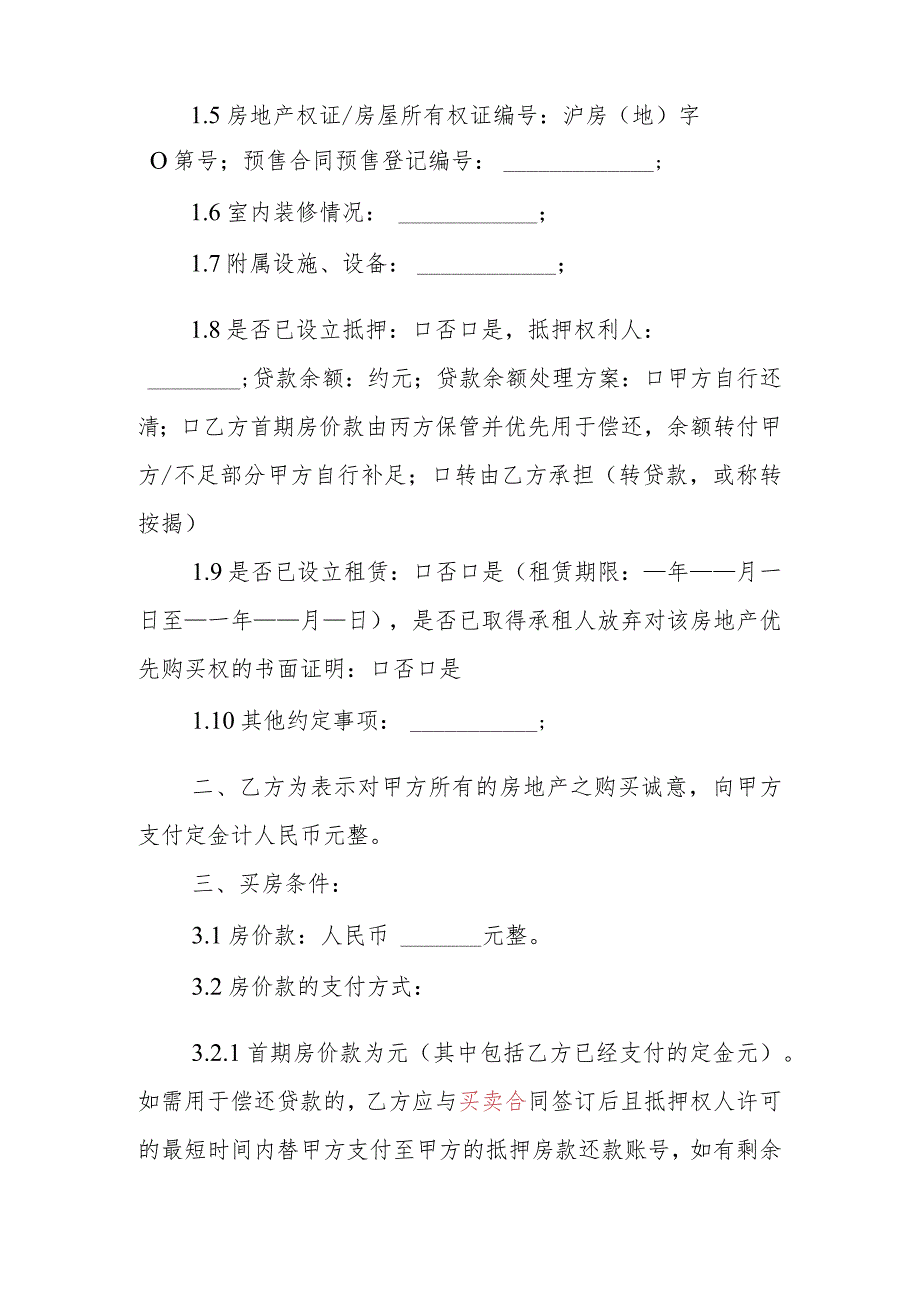 1.5 房地产权证/房屋所有权证编号：沪房（地）字
O 第号；预售合同预售登记编号： _____________；
1.6 室内装修情况： ____________；
1.7 附属设施、设备： ____________；
1.8 是否已设立抵押：口否口是，抵押权利人：
________；贷款余额：约元；贷款余额处理方案：口甲方自行还
清；口乙方首期房价款由丙方保管并优先用于偿还，余额转付甲
方/不足部分甲方自行补足；口转由乙方承担（转贷款，或称转
按揭）
1.9 是否已设立租赁：口否口是（租赁期限：—年——月一
日至—一年——月—日），是否已取得承租人放弃对该房地产优
先购买权的书面证明：口否口是
1.10 其他约定事项： ___________；
二、乙方为表示对甲方所有的房地产之购买诚意，向甲方
支付定金计人民币元整。
三、买房条件：
3.1 房价款：人民币 _______元整。
3.2 房价款的支付方式：
3.2.1 首期房价款为元（其中包括乙方已经支付的定金元）。
如需用于偿还贷款的，乙方应与买卖合同签订后且抵押权人许可
的最短时间内替甲方支付至甲方的抵押房款还款账号，如有剩余